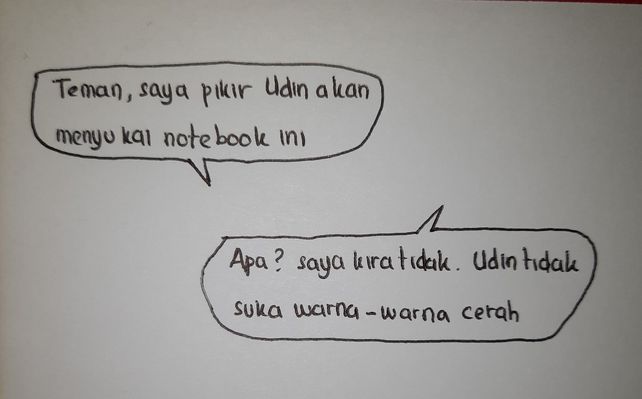 Teman, saya pikir Udin akan
menyukai notebook ini
Apa? saya kira tidak. Udin tidak
suka warna-warna cerah